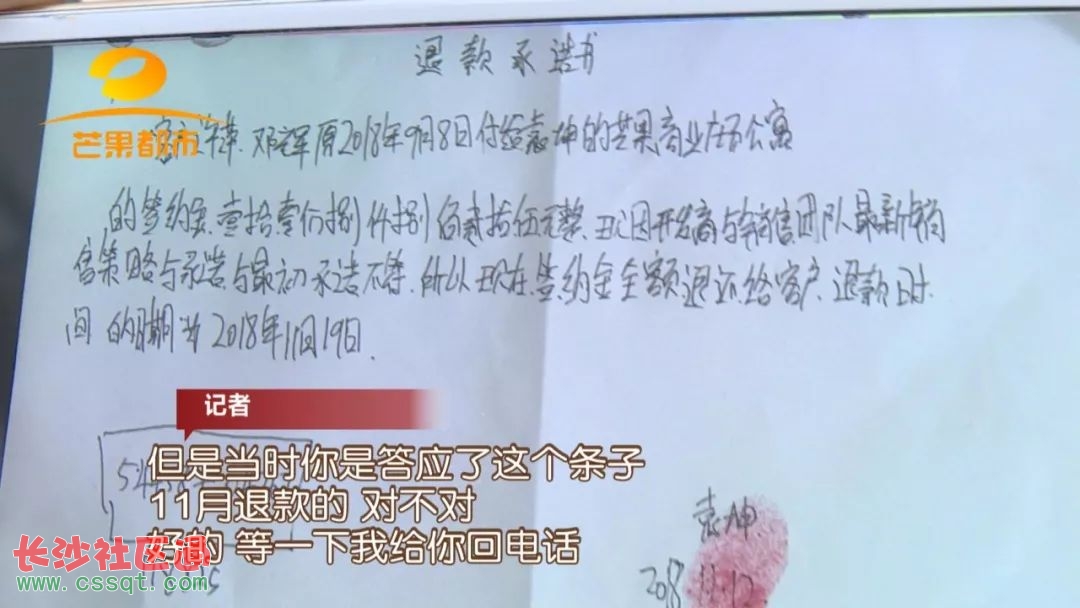 退款承诺书
芒果都市
邓辉原2018年9月8日付给袁坤的芒果商业广场公寓
的签约金壹拾壹仟捌佰贰拾伍元整,现因开发商与销售团队最新销
售策略与承诺与最初承诺不符,所以现在签约金全额退还给客户,退款时
间的日期为2018年11月19日.
记者
但是当时你是答应了这个条子
11月退款的 对不对
好的 等一下我给你回电话
袁坤
2018.11.12
长沙社区通
www.cssqt.com